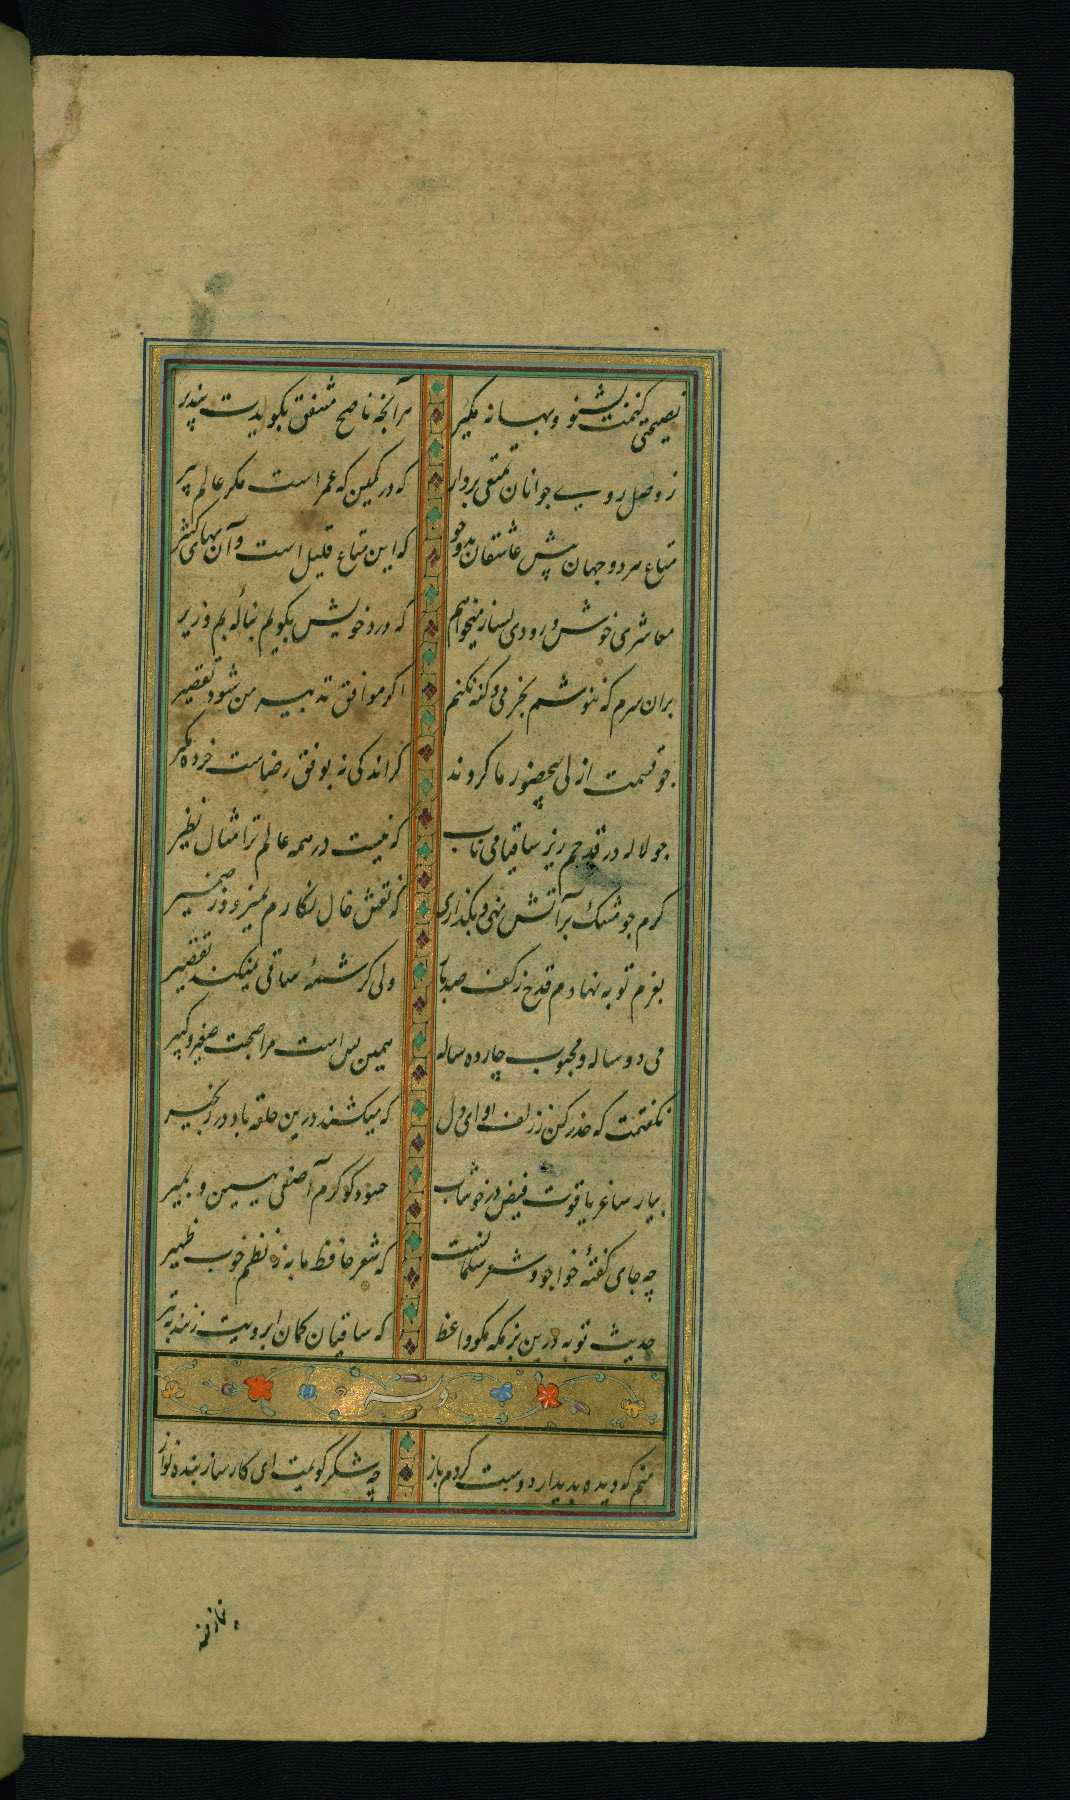 نصیحتی کنمت بشنو و بهانه مکیر هرآنچه ناصح مشفق بکویدت بپذیر
ز وصل روی جوانان تمتعی بردار که در کمین که عمر است مکر عالم پیر
متاع هر دو جهان پیش عاشقان بدو جو که این متاع قلیل است و آن بهای کثیر
معاشری خوش و رودی بساز میخواهم که درد خویش بکویم بنالهٔ بم و زیر
بران سرم که ننوشم می و کنه نکنم اکر موافق تدبیر من شود تقدیر
جو قسمت ازلی بیحضور ما کردند کر اندکی نه بوفق رضاست خرده مکیر
جو لاله در قدحم ریز ساقیا می ناب که نیست در همه عالم ترا مثال نظیر
کرم جو مشک بر آتش نهی و بکدازی که نقش خال نکارم نمیرود ز ضمیر
بعزم توبه نهادم قدح ز کف صد بار ولی کرشمهٔ ساقی نمیکند تقصیر
می دو ساله و محبوب چارده ساله همین بس است مرا صحبت صغیر و کبیر
نکفتمت که حذر کن ز زلف او ای دل که میکشند درین حلقه باد در زنجیر
بیار ساغر یاقوت فیض در خوشاب حسود کو کرم آصفی ببین و بمیر
چه جای کفتهٔ خواجو و شعر سلمانست که شعر حافظ ما به ز نظم خوب ظهیر
حدیث توبه درین بزمکه مکو واعظ که ساقیان کمان ابرویت زنند به تیر
وله
منم که دیده بدیدار دوست کردم باز چه شکر کویمت ای کارساز بنده نواز